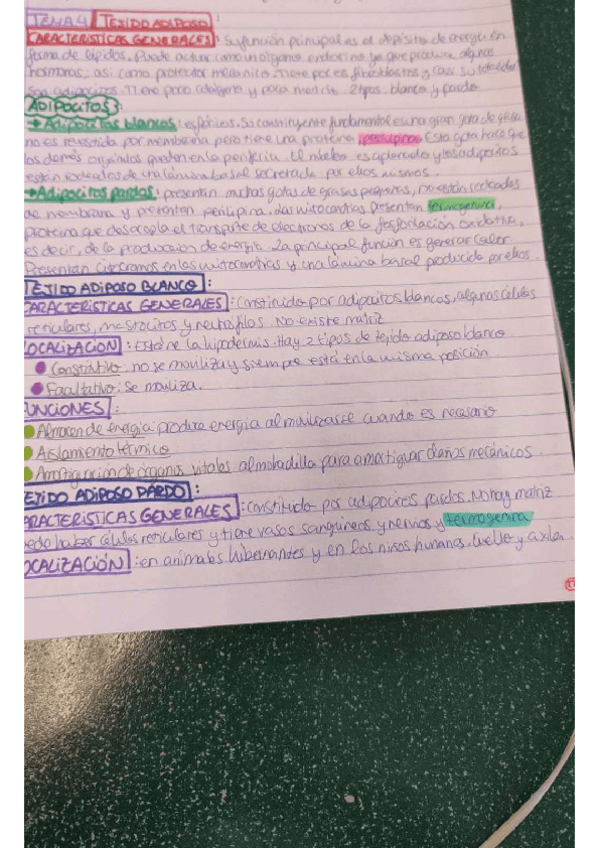 TEMA 4 TEJIDO ADIPOSO :
CARACTERISTICAS GENERALES: Su función principal es el depósito de energía en
forma de lípidos. Puede actuar como un órgano endocrino ya que produce algunas
hormonas, así como protector mecánico. Tiene pocos fibroblastos y casi su totalidad
son adipocitos. Tiene poco colágeno y poca matriz. 2 tipos: blanco y pardo
ADIPOCITOS:
→ Adipocitos blancos: esféricos. Su constituyente fundamental es una gran gota de grasa
no es revestida por membrana pero tiene una proteína perilipina. Esta gota hace que
los demás orgánulos queden en la periferia. El núcleo es aplanado y los adipocitos
están rodeados de una lámina basal secretada por ellos mismos.
→ Adipocitos pardos: presentan muchas gotas de grasas pequeñas, no están rodeadas
de membrana y presentan perilipina. Las mitocondrias presentan termogenina
proteína que desacopla el transporte de electrones de la fosforilación oxidativa,
es decir, de la producción de energía. La principal función es generar calor.
Presentan citocromos en las mitocondrias y una lámina basal producida por ellos.
TEJIDO ADIPOSO BLANCO:
CARACTERÍSTICAS GENERALES: Constituido por adipocitos blancos, algunas células
reticulares, mastocitos y neutrófilos. No existe matriz
LOCALIZACIÓN: Está en la hipodermis. Hay 2 tipos de tejido adiposo blanco
Constitutivo: no se moviliza y siempre está en la misma posición
Facultativo: Se moviliza.
FUNCIONES:
Almacén de energía: produce energía al movilizarse cuando es necesario
Aislamiento térmico
Amortiguación de órganos vitales almohadilla para amortiguar daños mecánicos.
TEJIDO ADIPOSO PARDO:
CARACTERÍSTICAS GENERALES: Constituido por adipocitos pardos. No hay matriz
puedo haber células reticulares y tiene vasos sanguíneos y nervios y termogenina
LOCALIZACIÓN: en animales hibernantes y en los niños humanos. Cuello y axilas